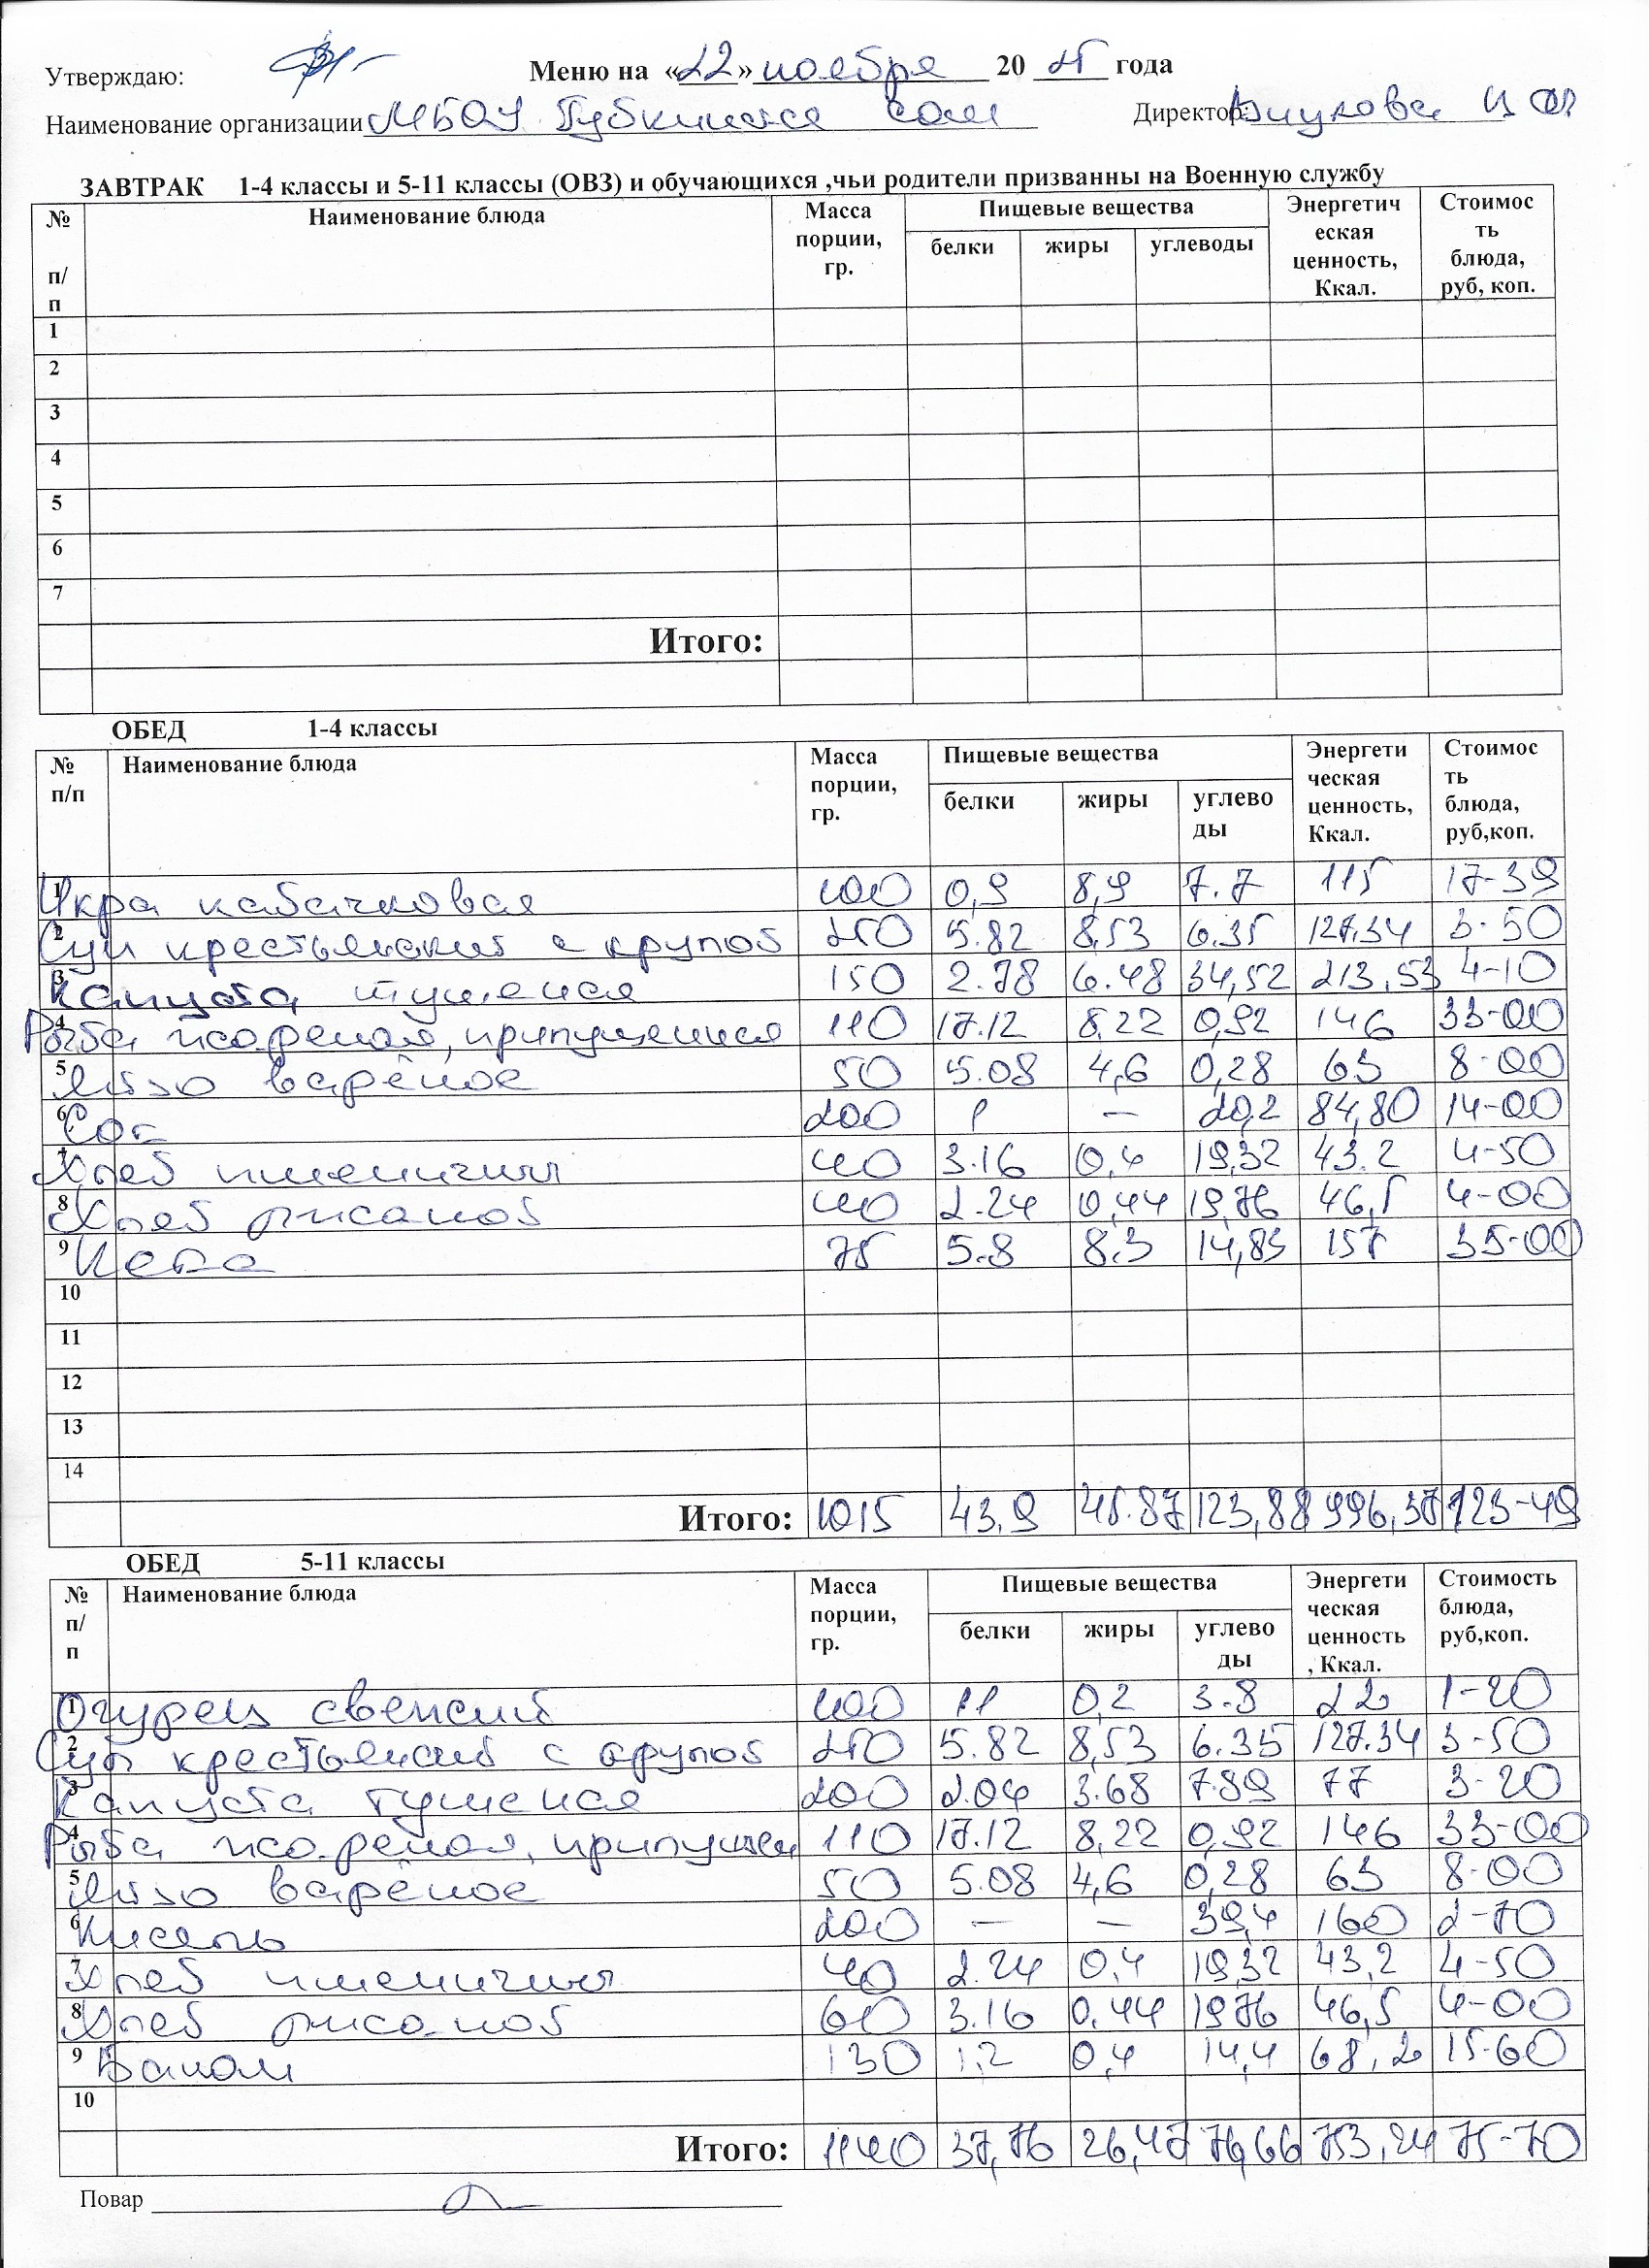 Утверждаю:
Меню на «22» ноября 20 25 года
Наименование организации МБОУ Губкинская сош Директор:
ЗАВТРАК 1-4 классы и 5-11 классы (ОВЗ) и обучающихся ,чьи родители призванны на Военную службу
№ п/п Наименование блюда Масса порции, гр. Пищевые вещества Энергетическая ценность, Ккал. Стоимость блюда, руб, коп.
белки жиры углеводы
1
2
3
4
5
6
7
Итого:
ОБЕД 1-4 классы
№ п/п Наименование блюда Масса порции, гр. Пищевые вещества Энергетическая ценность, Ккал. Стоимость блюда, руб,коп.
белки жиры углеводы
1 Икра кабачковая 100 0,9 8,9 7.7 115 17-39
2 Суп крестьянский с крупой 250 5.82 8,53 6.35 127.34 3-50
3 Капуста тушеная 150 2.78 6.48 34,52 213,53 4-10
4 Рыба жареная, припущенная 110 17.12 8,22 0,92 146 33-00
5 Яйцо варёное 50 5.08 4,6 0,28 63 8-00
6 Сок 200 1 — 20,2 84,80 14-00
7 Хлеб пшеничный 40 3.16 0,4 19,32 43.2 4-50
8 Хлеб ржаной 40 2.24 0,44 19,76 46,5 4-00
9 75 5.8 8.3 14,83 157 35-00
10
11
12
13
14
Итого: 1015 43,9 45.87 123,88 996,37 123-49
ОБЕД 5-11 классы
№ п/п Наименование блюда Масса порции, гр. Пищевые вещества Энергетическая ценность, Ккал. Стоимость блюда, руб,коп.
белки жиры углеводы
1 Огурец свежий 100 11 0,2 3.8 22 1-20
2 Суп крестьянский с крупой 250 5.82 8,53 6.35 127.34 3-50
3 Капуста тушеная 200 2.04 3.68 7.89 77 3-20
4 Рыба жареная, припущен 110 17.12 8,22 0,92 146 33-00
5 Яйцо варёное 50 5.08 4,6 0,28 63 8-00
6 Кисель 200 — — 39,4 160 2-70
7 Хлеб пшеничный 40 2.24 0,4 19,32 43,2 4-50
8 Хлеб ржаной 60 3.16 0,44 19,76 46,5 4-00
9 Банан 130 1,2 0,4 14,4 68,2 15-60
10
Итого: 1140 37,76 26,47 76,66 753,24 75-70
Повар